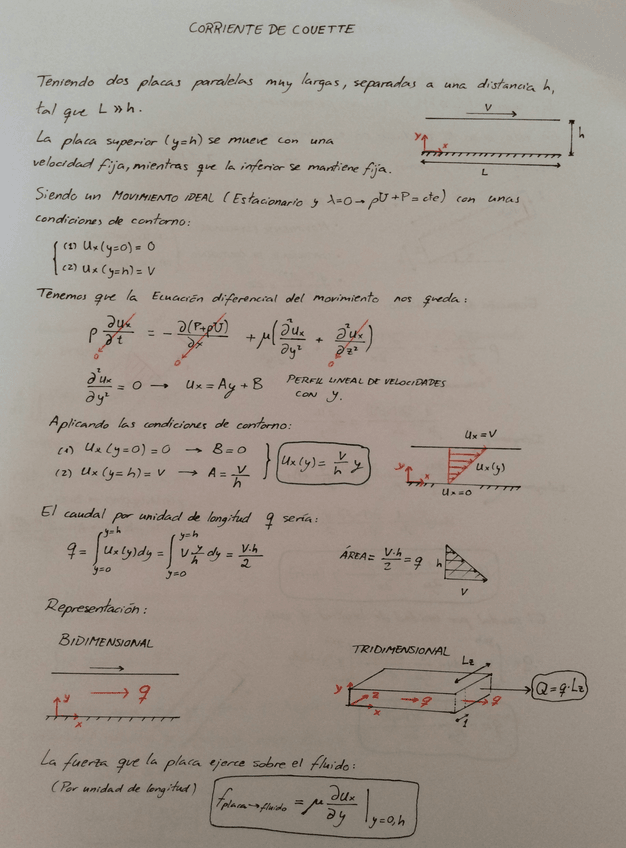 CORRIENTE DE COUETTE
Teniendo dos placas paralelas muy largas, separadas a una distancia h,
tal que L >> h.
V
h
y
x
L
La placa superior (y=h) se mueve con una
velocidad fija, mientras que la inferior se mantiene fija.
Siendo un MOVIMIENTO IDEAL (Estacionario y λ=0 → ρU+P=cte) con unas
condiciones de contorno:
(1) Ux(y=0) = 0
(2) Ux(y=h) = V
Tenemos que la Ecuación diferencial del movimiento nos queda:
ρ ∂Ux/∂t = - ∂(P+ρU)/∂x + μ(∂²Ux/∂y² + ∂²Ux/∂z²)
0 0 0
∂²Ux/∂y² = 0 → Ux = Ay + B PERFIL LINEAL DE VELOCIDADES
CON Y.
Aplicando las condiciones de contorno:
(1) Ux(y=0) = 0 → B = 0
(2) Ux(y=h) = V → A = V/h
Ux(y) = V/h y
Ux=V
Ux(y)
y
x
Ux=0
El caudal por unidad de longitud q sería:
q = ∫_{y=0}^{y=h} Ux(y)dy = ∫_{y=0}^{y=h} V y/h dy = V·h/2
ÁREA = V·h/2 = q
h
V
Representación:
BIDIMENSIONAL
q
y
x
TRIDIMENSIONAL
Lz
y
z
x
q
q
1
Q=q·Lz
La fuerza que la placa ejerce sobre el fluido:
(Por unidad de longitud)
f placa→fluido = μ ∂Ux/∂y |y=0,h